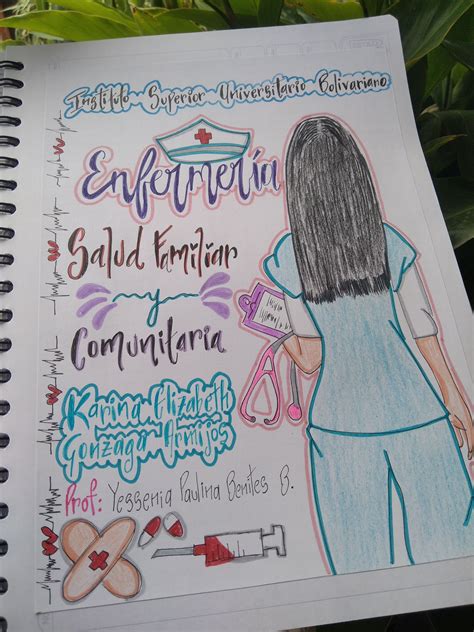 Instituto Superior Universitario Bolivariano
Enfermería
Salud Familiar
y
Comunitaria
Karina Elizabeth
Gonzaga Armijos
Prof: Yessenia Paulina Benites B.